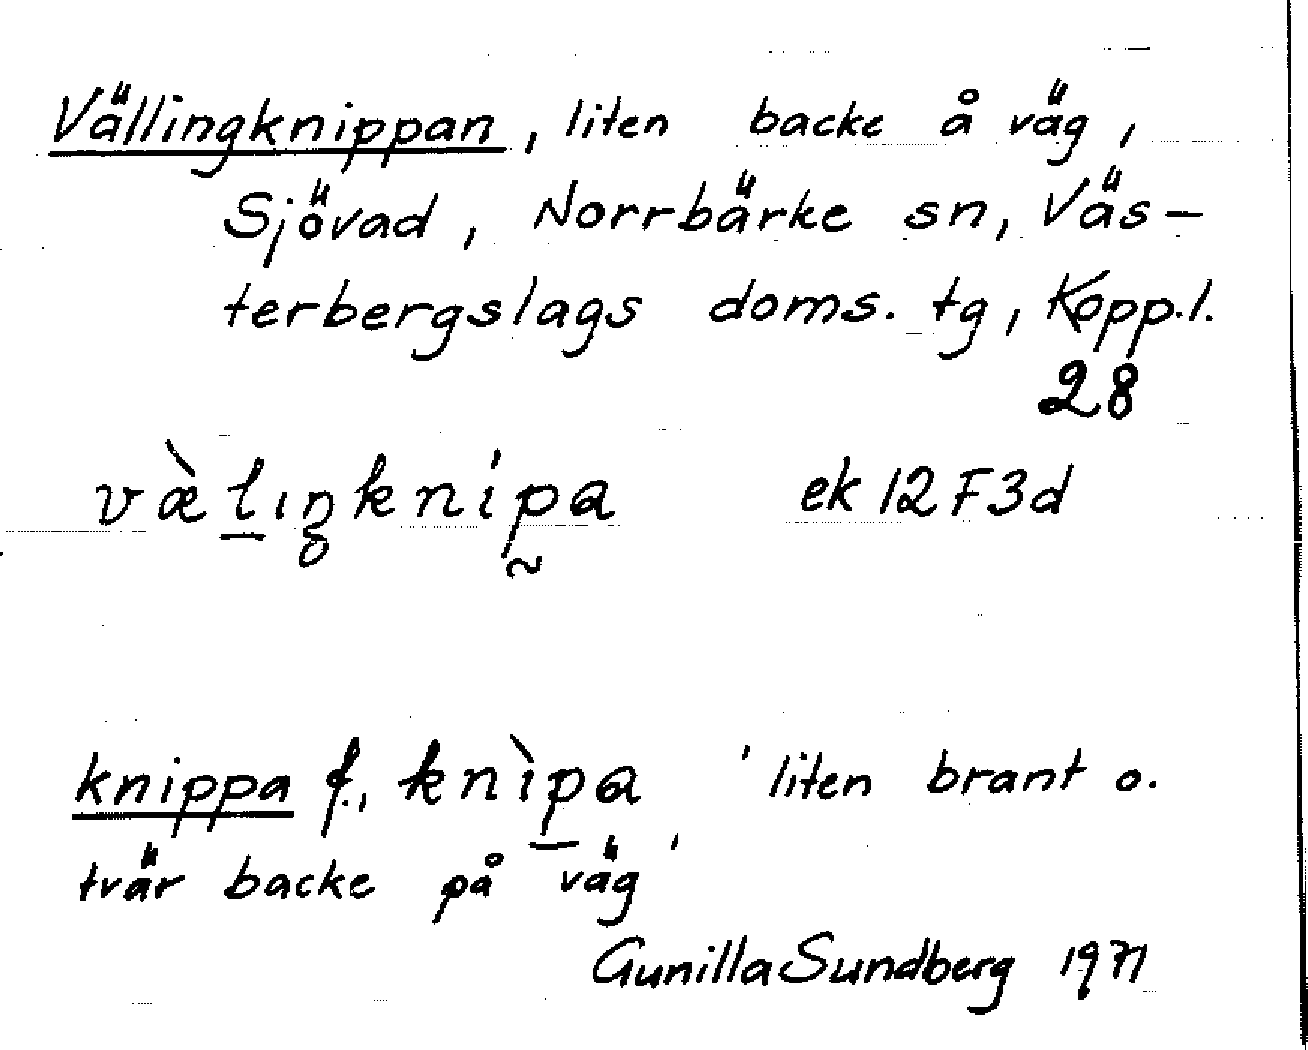 Vällingknippan, liten backe å väg,
Sjövad, Norrbärke sn, Väs-
terbergslags doms. tg, Kopp.l.
28
væ̀l̠ıŋkni̍p̰a ek 12F3d
knippa f., knìp̠a 'liten brant o.
tvär backe på väg'
Gunilla Sundberg 1971